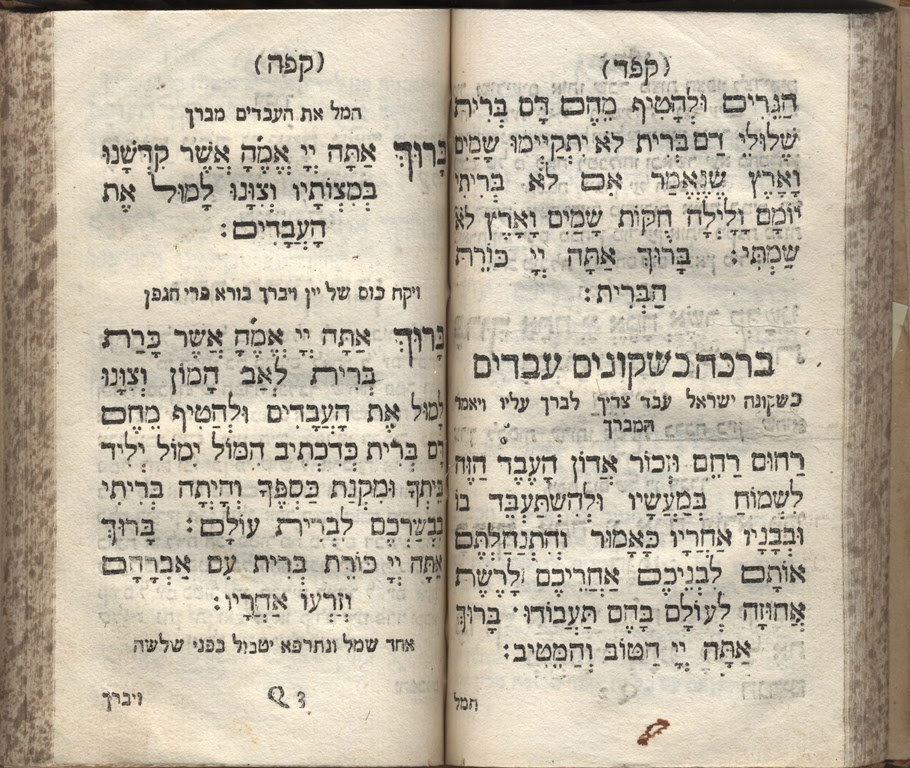 (קפד)
הַגֵּרִים וּלְהַטִּיף מֵהֶם דַּם בְּרִית
שֶׁלּוּלֵי דַם בְּרִית לֹא יִתְקַיְּימוּ שָׁמַיִם
וָאָרֶץ שֶׁנֶּאֱמַר אִם לֹא בְּרִיתִי
יוֹמָם וָלַיְלָה חֻקּוֹת שָׁמַיִם וָאָרֶץ לֹא
שַׂמְתִּי: בָּרוּךְ אַתָּה יְיָ כּוֹרֵת
הַבְּרִית:
ברכה כשקונים עבדים
כשקונה ישראל עבד צריך לברך עליו ויאמר
המברך
רַחוּם רַחֵם וּזְכוֹר אֲדוֹן הָעֶבֶד הַזֶּה
לִשְׂמוֹחַ בְּמַעֲשָׂיו וּלְהִשְׁתַּעְבֵּד בּוֹ
וּבְבָנָיו אַחֲרָיו כָּאָמוּר וְהִתְנַחַלְתֶּם
אוֹתָם לִבְנֵיכֶם אַחֲרֵיכֶם לָרֶשֶׁת
אֲחוּזָּה לְעוֹלָם בָּהֶם תַּעֲבוֹדוּ. בָּרוּךְ
אַתָּה יְיָ הַטּוֹב וְהַמֵּטִיב:
המל
(קפה)
המל את העבדים מברך
בָּרוּךְ אַתָּה יְיָ אֱמֶ֗הָ אֲשֶׁר קִדְּשָׁנוּ
בְּמִצְוֹתָיו וְצִוָּנוּ לָמוּל אֶת
הָעֲבָדִים:
ויקח כוס של יין ויברך בורא פרי הגפן
בָּרוּךְ אַתָּה יְיָ אֱמֶ֗הָ אֲשֶׁר כָּרַת
בְּרִית לְאַב הָמוֹן וְצִוָּנוּ
לָמוּל אֶת הָעֲבָדִים וּלְהַטִּיף מֵהֶם
דַּם בְּרִית כְּדִכְתִיב הִמּוֹל יִמּוֹל יְלִיד
בֵּיתְךָ וּמִקְנַת כַּסְפֶּךָ וְהָיְתָה בְּרִיתִי
בִּבְשַׂרְכֶם לִבְרִית עוֹלָם: בָּרוּךְ
אַתָּה יְיָ כּוֹרֵת בְּרִית עִם אַבְרָהָם
וְזַרְעוֹ אַחֲרָיו:
אחד שמל ונתרפא יטבול בפני שלשה
Q 3 ויברך